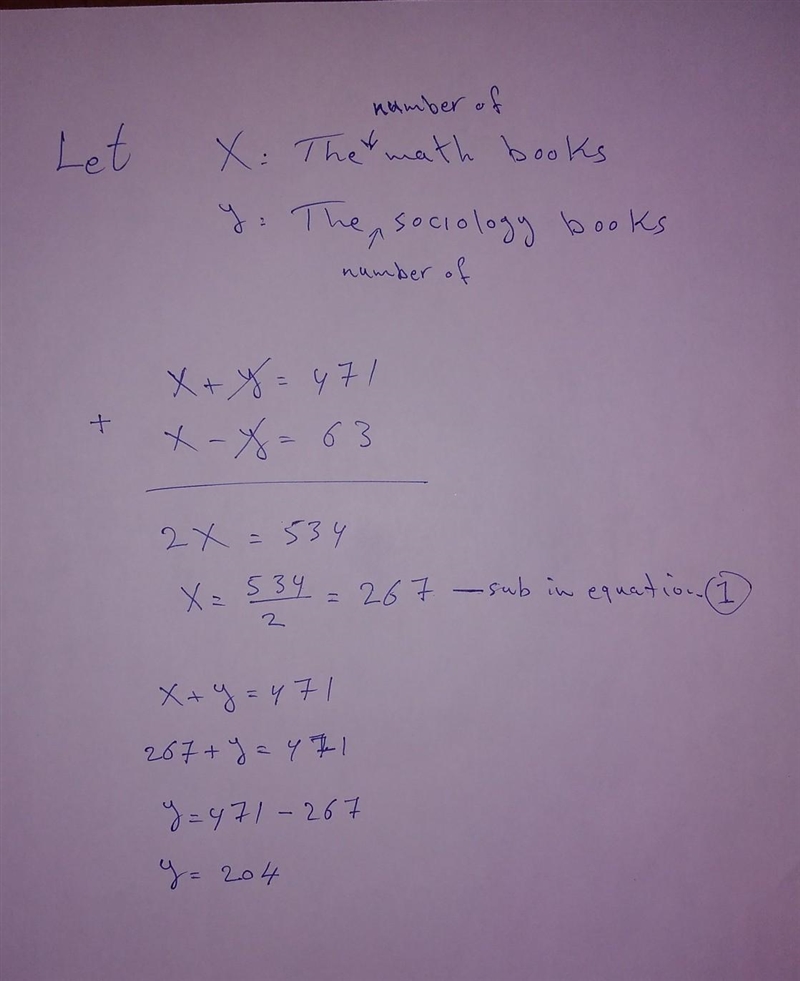 number of
Let X: The math books
y: The sociology books
number of
x + y = 471
+
x - y = 63
2x = 534
x = 534/2 = 267 — sub in equation 1
x + y = 471
267 + y = 471
y = 471 - 267
y = 204